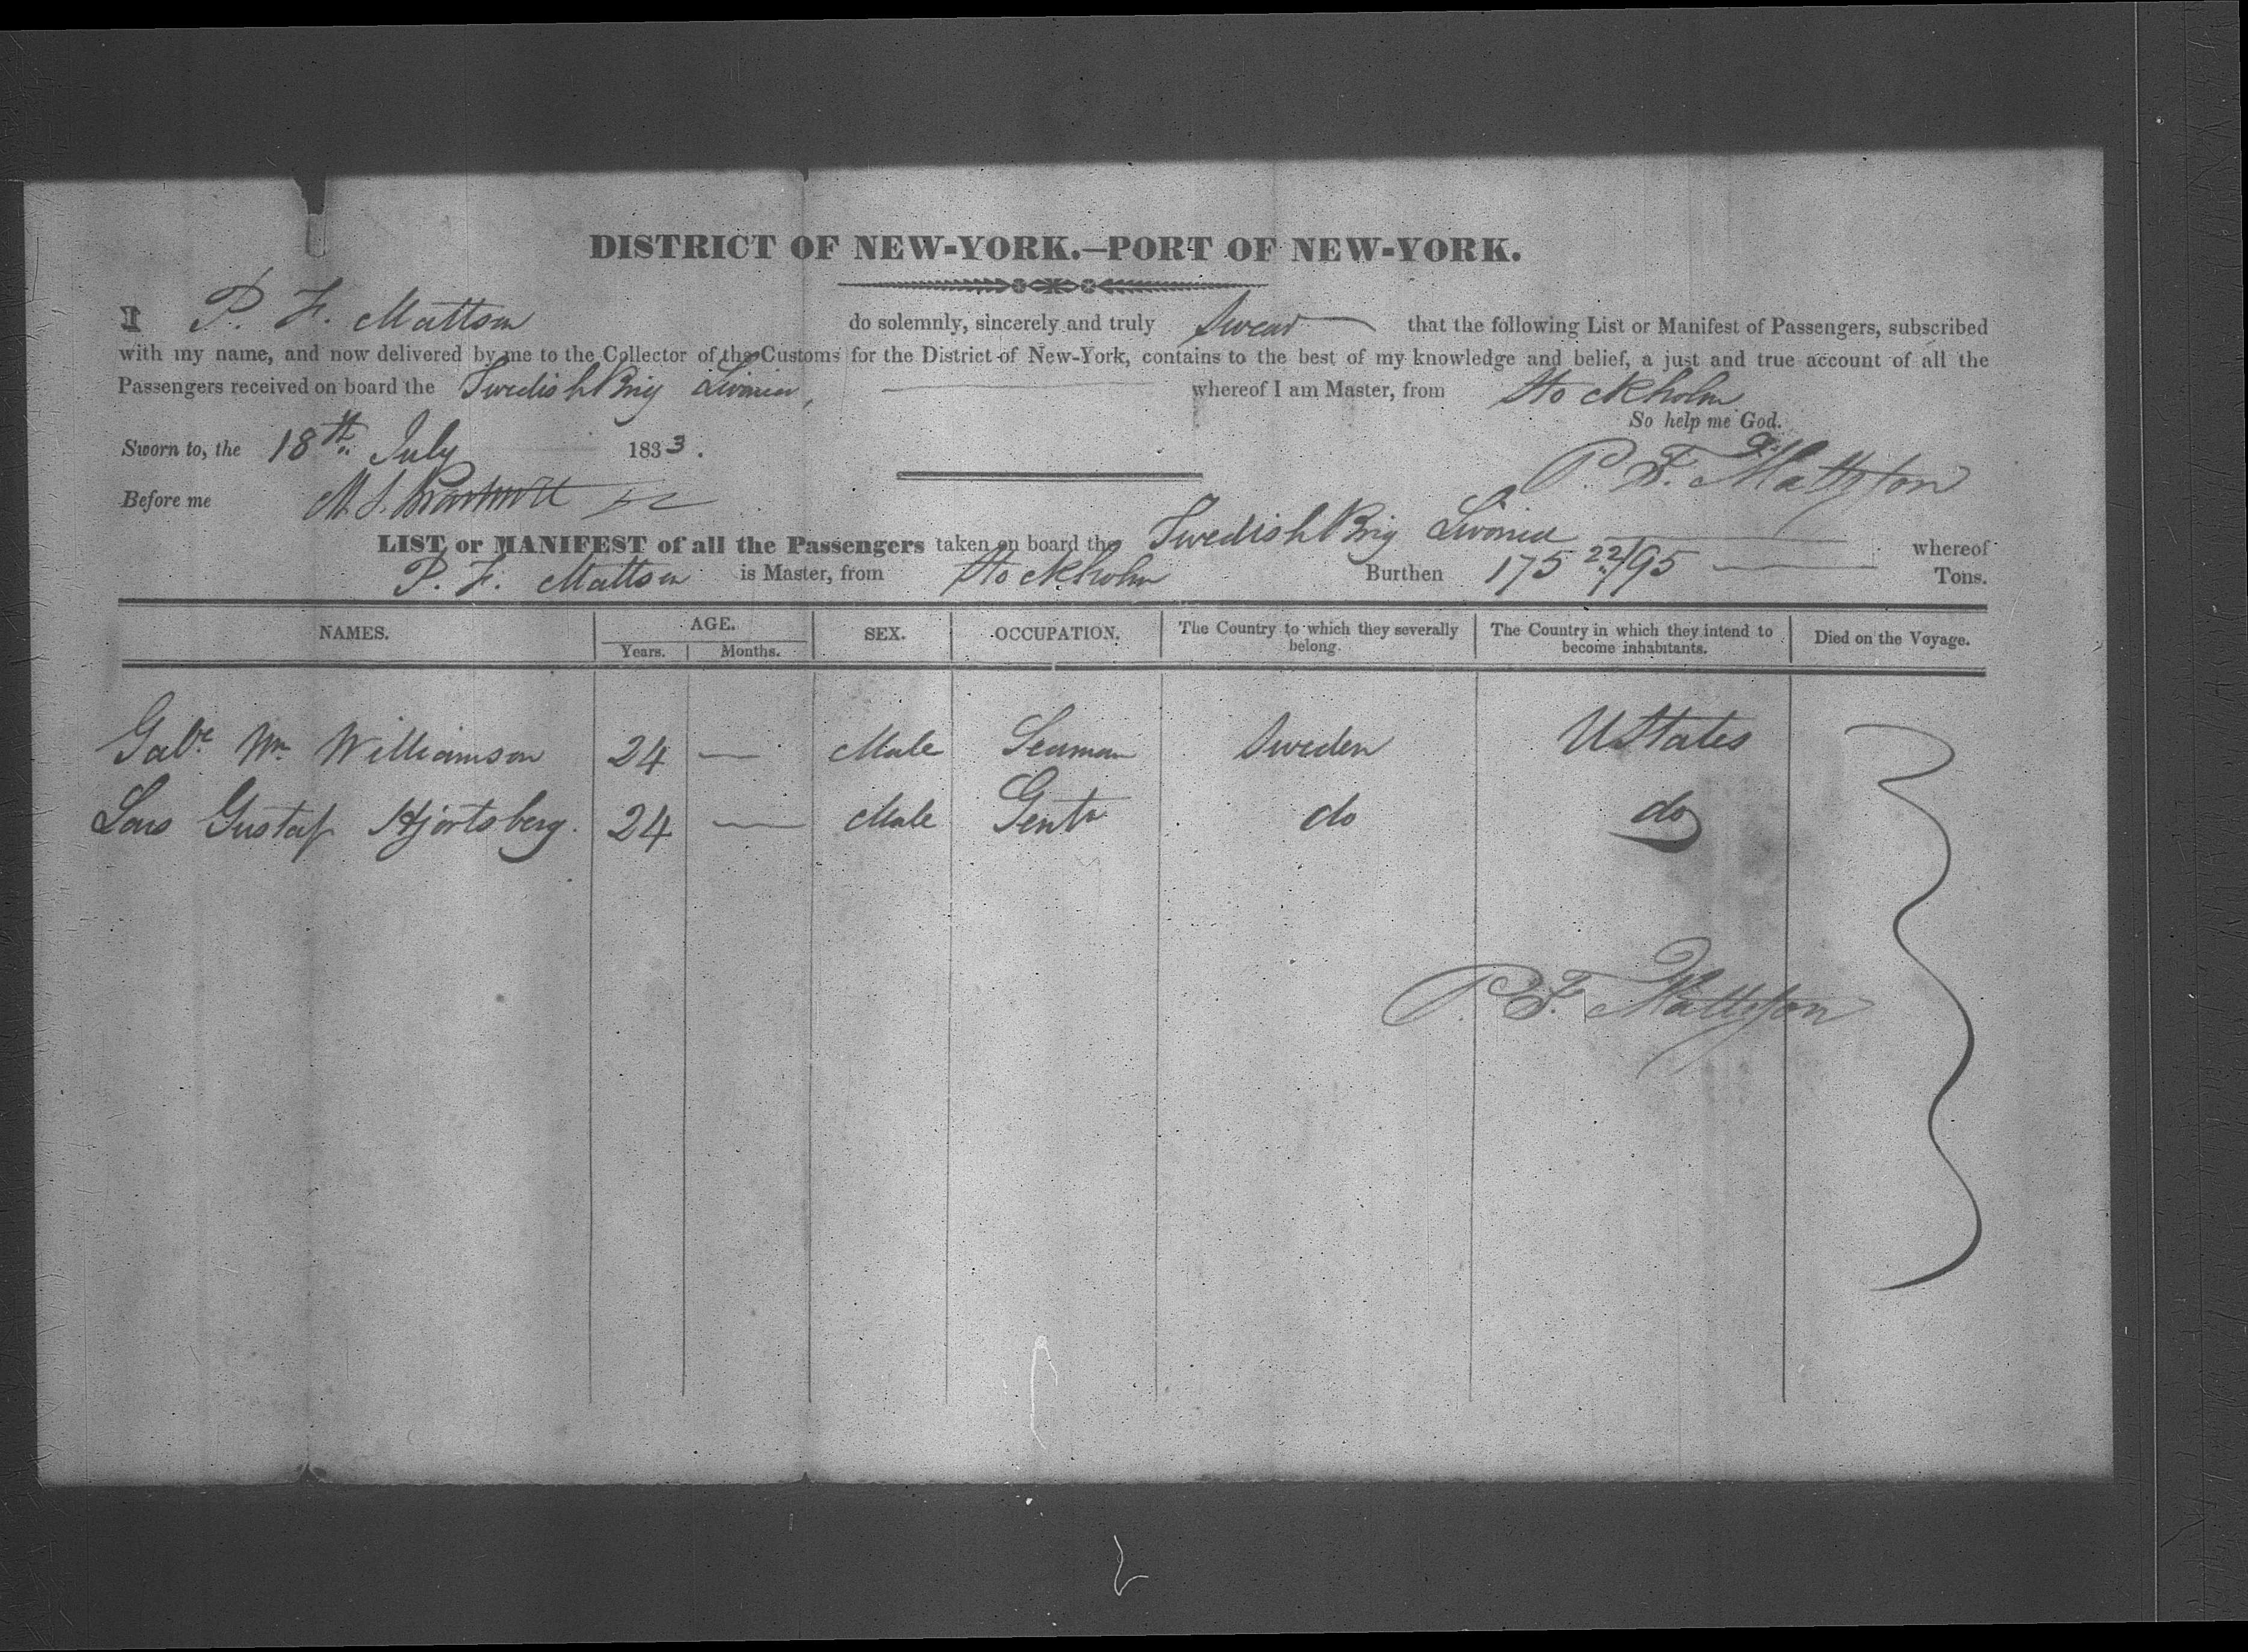 DISTRICT OF NEW-YORK.—PORT OF NEW-YORK.
I P. F. Mattson do solemnly, sincerely and truly Swear that the following List or Manifest of Passengers, subscribed
with my name, and now delivered by me to the Collector of the Customs for the District of New-York, contains to the best of my knowledge and belief, a just and true account of all the
Passengers received on board the Swedish Brig Livonia, whereof I am Master, from Stockholm
So help me God.
Sworn to, the 18th July 1833.
P. F. Mattsson
Before me
LIST or MANIFEST of all the Passengers taken on board the Swedish Brig Livonia whereof
P. F. Mattson is Master, from Stockholm Burthen 175 22/95 Tons.
NAMES. AGE. SEX. OCCUPATION. The Country to which they severally belong. The Country in which they intend to become inhabitants. Died on the Voyage.
Years. Months.
Gabl Wm Williamson 24 — Male Seaman Sweden U States
Lars Gustaf Hjortsberg. 24 — Male Gentn do do
P. F. Mattsson